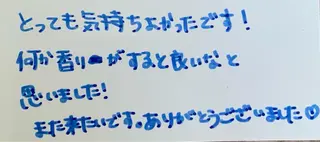 とっても気持ちよかったです!
何か香りがすると良いなと
思いました!
また来たいです。ありがとうございました☺